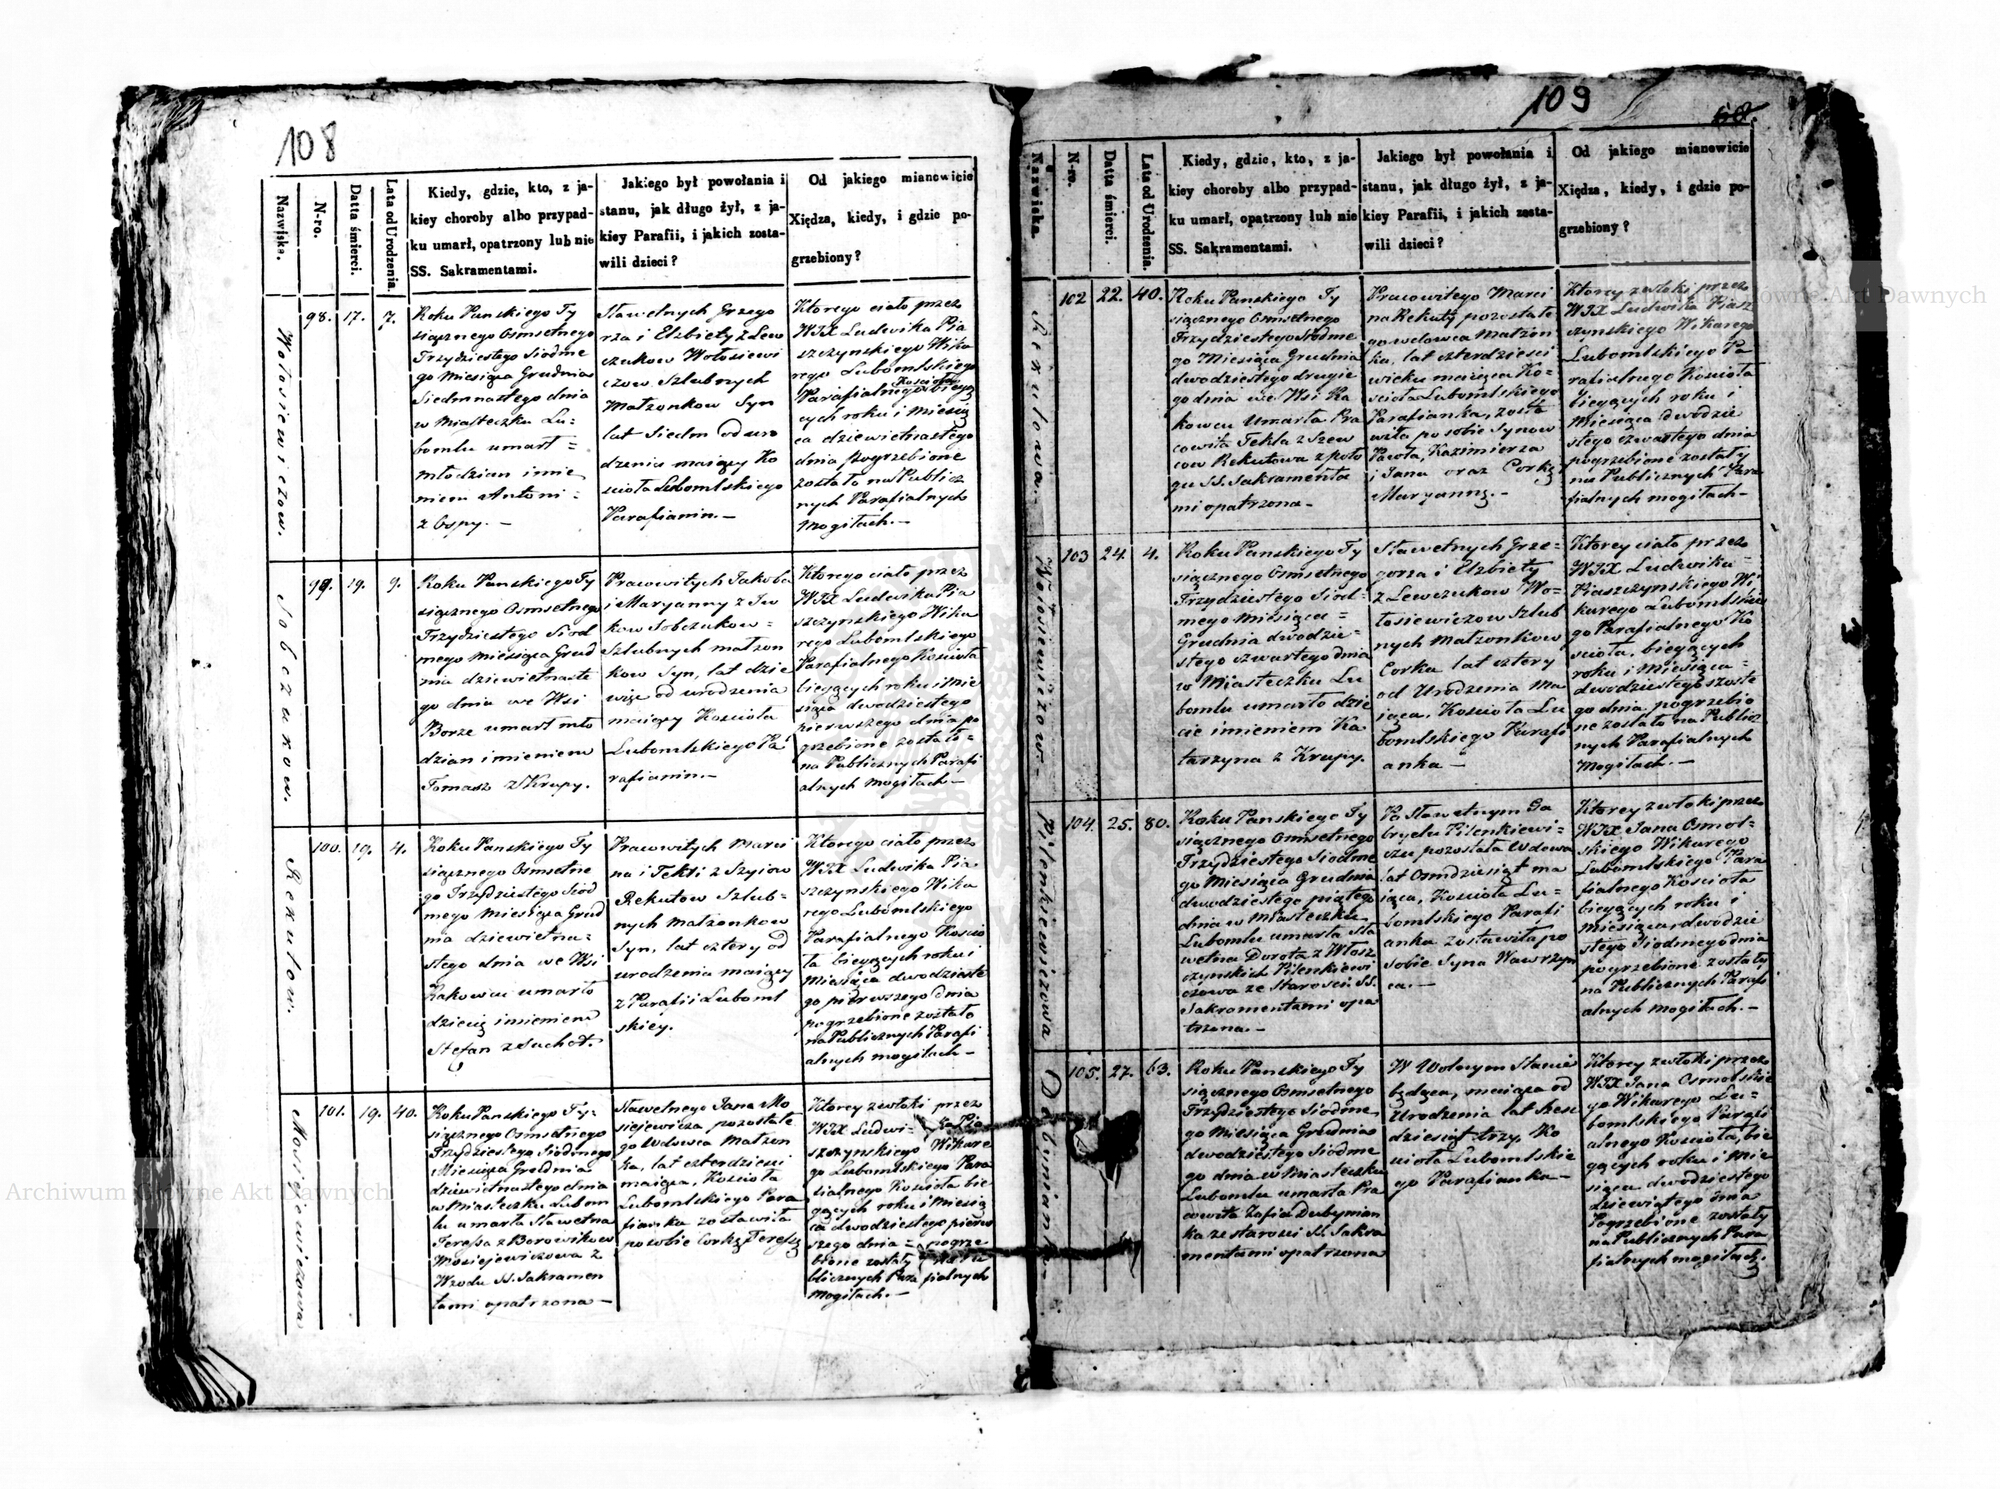 108
Nazwiska.
N-ro.
Datta śmierci.
Lata od Urodzenia.
Kiedy, gdzie, kto, z ja-
kiey choroby albo przypad-
ku umarł, opatrzony lub nie
SS. Sakramentami.
Jakiego był powołania i
stanu, jak długo żył, z ja-
kiey Parafii, i jakich zosta-
wili dzieci?
Od jakiego mianowicie
Xiędza, kiedy, i gdzie po-
grzebiony?
Wołosiewiczow.
98.
17.
7.
Roku Panskiego Ty
siącznego Osmsetnego
Trzydziestego Siodme
go Miesiąca Grudnia
Siedmnastego dnia
w Miasteczku Lu-
bomlu umarł =
młodzian imie
niem Antoni -
z Ospy. -
Sławetnych Grzego
rza i Elzbiety z Lew
czukow Wołosiewi
czow Szlubnych
Małzonkow Syn
lat Siedm od uro
dzenia maiący Ko
scioła Lubomlskiego
Parafianin. -
Ktorego ciało przez
WJX Ludwika Pia
szczynskiego Wika
rego Lubomlskiego
Parafialnego Kościoła bieżą
cych roku i miesią
ca dziewietnastego
dnia pogrzebione
zostało na Publicz
nych Parafialnych
Mogiłach. -
Sobczukow.
99.
19.
9.
Roku Panskiego Ty
siącznego Osmsetnego
Trzydziestego Siod
mego miesiąca Grud
nia dziewietnaste
go dnia we Wsi
Borze umarł mło
dzian imieniem
Tomasz z Krupy.
Pracowitych Jakoba
i Maryanny z Iw
kow Sobczukow =
Szlubnych małzon
kow Syn, lat dzie
więc od urodzenia
maiący Kościoła
Lubomlskiego Pa
rafianin. -
Ktorego ciało przez
WJX Ludwika Pia
szczynskiego Wika
rego Lubomlskiego
Parafialnego Kościoła
bieżących roku i Mie
siąca dwodziestego
pierwszego dnia po
grzebione zostało =
na Publicznych Parafi
alnych mogiłach -
Rekutow.
100.
19.
4.
Roku Panskiego Ty
siącznego Osmsetne
go Trzydziestego Siod
mego Miesiąca Grud
nia dziewietna-
stego dnia we Wsi
Rakowcu umarło
dziecię imieniem
Stefan z Suchot.
Pracowitych Marci
na i Tekli z Szyiow
Rekutow Szlub-
nych małzonkow
Syn, lat cztery od
urodzenia maiący
z Parafii Luboml
skiey.
Ktorego ciało przez
WJX Ludwika Pia
szczynskiego Wika
rego Lubomlskiego
Parafialnego Koscio
ła bieżących roku i
Miesiąca dwodzieste
go pierwszego dnia
pogrzebione zostało
na Publicznych Parafi
alnych mogiłach -
Mosiejewiczowa
101.
19.
40.
Roku Panskiego Ty-
siącznego Osmsetnego
Trzydziestego Siodmego
Miesiąca Grudnia
dziewietnastego dnia
w Miasteczku Lubom
lu umarła Sławetna
Teressa z Borowikow
Mosiejewiczowa z
Wrodu SS. Sakramen
tami opatrzona -
Sławetnego Jana Mo
siejewicza pozostałe
go Wdowca Małzon
ka, lat czterdziesci
maiąca, Kościoła
Lubomlskiego Para
fianka zostawiła
po sobie Corkę Teressę
Ktorey zwłoki przez
WJX Ludwi- ka Pia
szczynskiego Wikare
go Lubomlskiego Para
fialnego Kościoła bie
żących roku i Miesią
ca dwodziestego pierw
szego dnia = pogrze
bione zostały na Pu
blicznych Para fialnych
Mogiłach. -
109
Nazwiska.
N-ro.
Datta śmierci.
Lata od Urodzenia.
Kiedy, gdzie, kto, z ja-
kiey choroby albo przypad-
ku umarł, opatrzony lub nie
SS. Sakramentami.
Jakiego był powołania i
stanu, jak długo żył, z ja-
kiey Parafii, i jakich zosta-
wili dzieci?
Od jakiego mianowicie
Xiędza, kiedy, i gdzie po-
grzebiony?
Rekutowa.
102
22.
40.
Roku Panskiego Ty
siącznego Osmsetnego
Trzydziestego Siodme
go Miesiąca Grudnia
dwodziestego drugie
go dnia we Wsi Ra
kowcu Umarła Pra
cowita Tekla z Szew
cow Rekutowa z poło
gu SS. Sakramenta
mi opatrzona -
Pracowitego Marci
na Rekuty pozostałe
go wdowca Małzon
ka, lat czterdziesci
wieku maiąca Ko-
scioła Lubomlskiego
Parafianka, zosta
wiła po sobie Synow
Pawła, Kazimierza
i Jana oraz Corkę
Maryannę. -
Ktorey zwłoki przez
WJX Ludwika Piasz
czynskiego Wikarego
Lubomlskiego Pa
rafialnego Kościoła
bieżących roku i
Miesiąca dwodzie
stego czwartego dnia
pogrzebione zostały
na Publicznych Para
fialnych mogiłach -
Wołosiewiczow -
103
24.
4.
Roku Panskiego Ty
siącznego Osmsetnego
Trzydziestego Siod-
mego Miesiąca =
Grudnia dwodzie-
stego czwartego dnia
w Miasteczku Lu
bomlu umarło dzie
cie imieniem Ka
tarzyna z Krupy.
Sławetnych Grze-
gorza i Elzbiety
z Lewczukow Wo-
łosiewiczow Szlub
nych Małzonkow
Corka lat cztery
od Urodzenia Ma
iąca, Kościoła Lu
bomlskiego Parafi
anka -
Ktorey ciało przez
WJX Ludwika
Piaszczynskiego Wi
karego Lubomlskie
go Parafialnego Ko
scioła, bieżących
roku i Miesiąca =
dwodziestego szoste
go dnia pogrzebio
ne zostało na Publicz
nych Parafialnych
Mogiłach. -
Pilenkiewiczowa
104.
25.
80.
Roku Panskiego Ty
siącznego Osmsetnego
Trzydziestego Siodme
go Miesiąca Grudnia
dwodziestego piątego
dnia w Miasteczku
Lubomlu umarła Sła
wetna Dorota z Włosz
czynskich Pilenkiewi
czowa ze Starosci SS.
Sakramentami opa
trzona. -
Po Sławetnym Ga
bryelu Pilenkiewi-
czu pozostała Wdowa
lat Osmdziesiąt ma
iąca, Kościoła Lu-
bomlskiego Parafi
anka zostawiła po
sobie Syna Wawrzyn
ca. -
Ktorey zwłoki przez
WJX Jana Osmol-
skiego Wikarego
Lubomlskiego Para
fialnego Kościoła
bieżących roku i
miesiąca, dwodzie
stego Siodmego dnia
pogrzebione zostały
na Publicznych Parafi
alnych mogiłach. -
Dubynianka
105.
27.
63.
Roku Panskiego Ty
siącznego Osmsetnego
Trzydziestego Siodme
go Miesiąca Grudnia
dwodziestego Siodme
go dnia w Miasteczku
Lubomlu umarła Pra
cowita Zofia Dubynian
ka ze starosci SS. Sakra
mentami opatrzona
W Wolnym stanie
będąca, maiąca od
Urodzenia lat szes
dziesiąt trzy, Ko
scioła Lubomlskie
go Parafianka -
Ktorey zwłoki przez
WJX Jana Osmolskie
go Wikarego Lu-
bomlskiego Parafi
alnego Kościoła, bie
żących roku i mie
siąca dwodziestego
dziewiątego dnia
Pogrzebione zostały
na Publicznych Para
fialnych mogiłach.
Archiwum Główne Akt Dawnych
Archiwum Główne Akt Dawnych